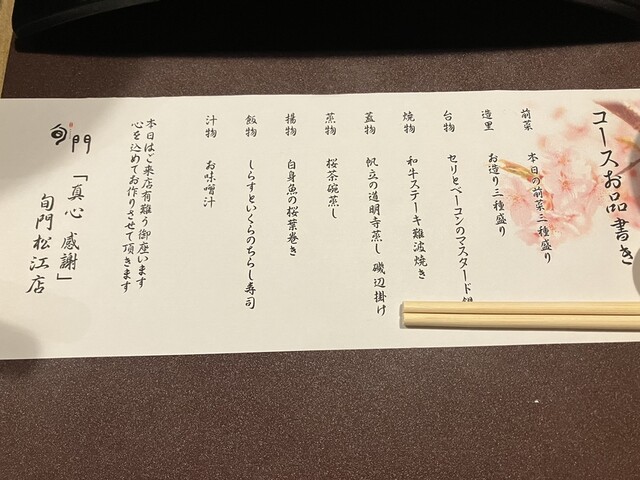 コースお品書き
前菜 本日の前菜三種盛り
造里 お造り三種盛り
台物 セリとベーコンのマスタード
焼物 和牛ステーキ難波焼き
蓋物 帆立の道明寺蒸し 磯辺掛け
蒸物 桜茶碗蒸し
揚物 白身魚の桜葉巻き
飯物 しらすといくらのちらし寿司
汁物 お味噌汁
本日はご来店有難う御座います
心を込めてお作りさせて頂きます
旬門
「真心 感謝」
旬門松江店